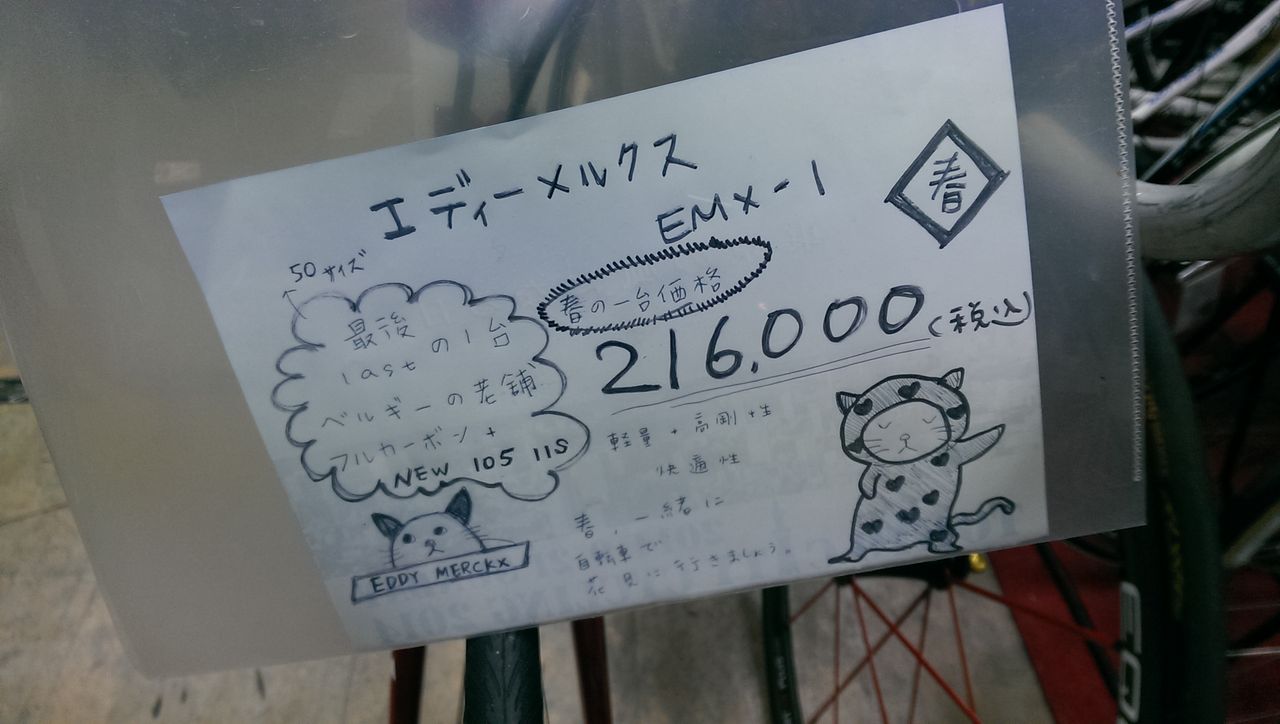 エディーメルクス
EMX-1
春
50サイズ
最後の1台
last
ベルギーの老舗
フルカーボン+
NEW 105 11S
春の一台価格
216,000(税込)
軽量+高剛性
快適性
春、一緒に
自転車で
花見に行きましょう。
EDDY MERCKX